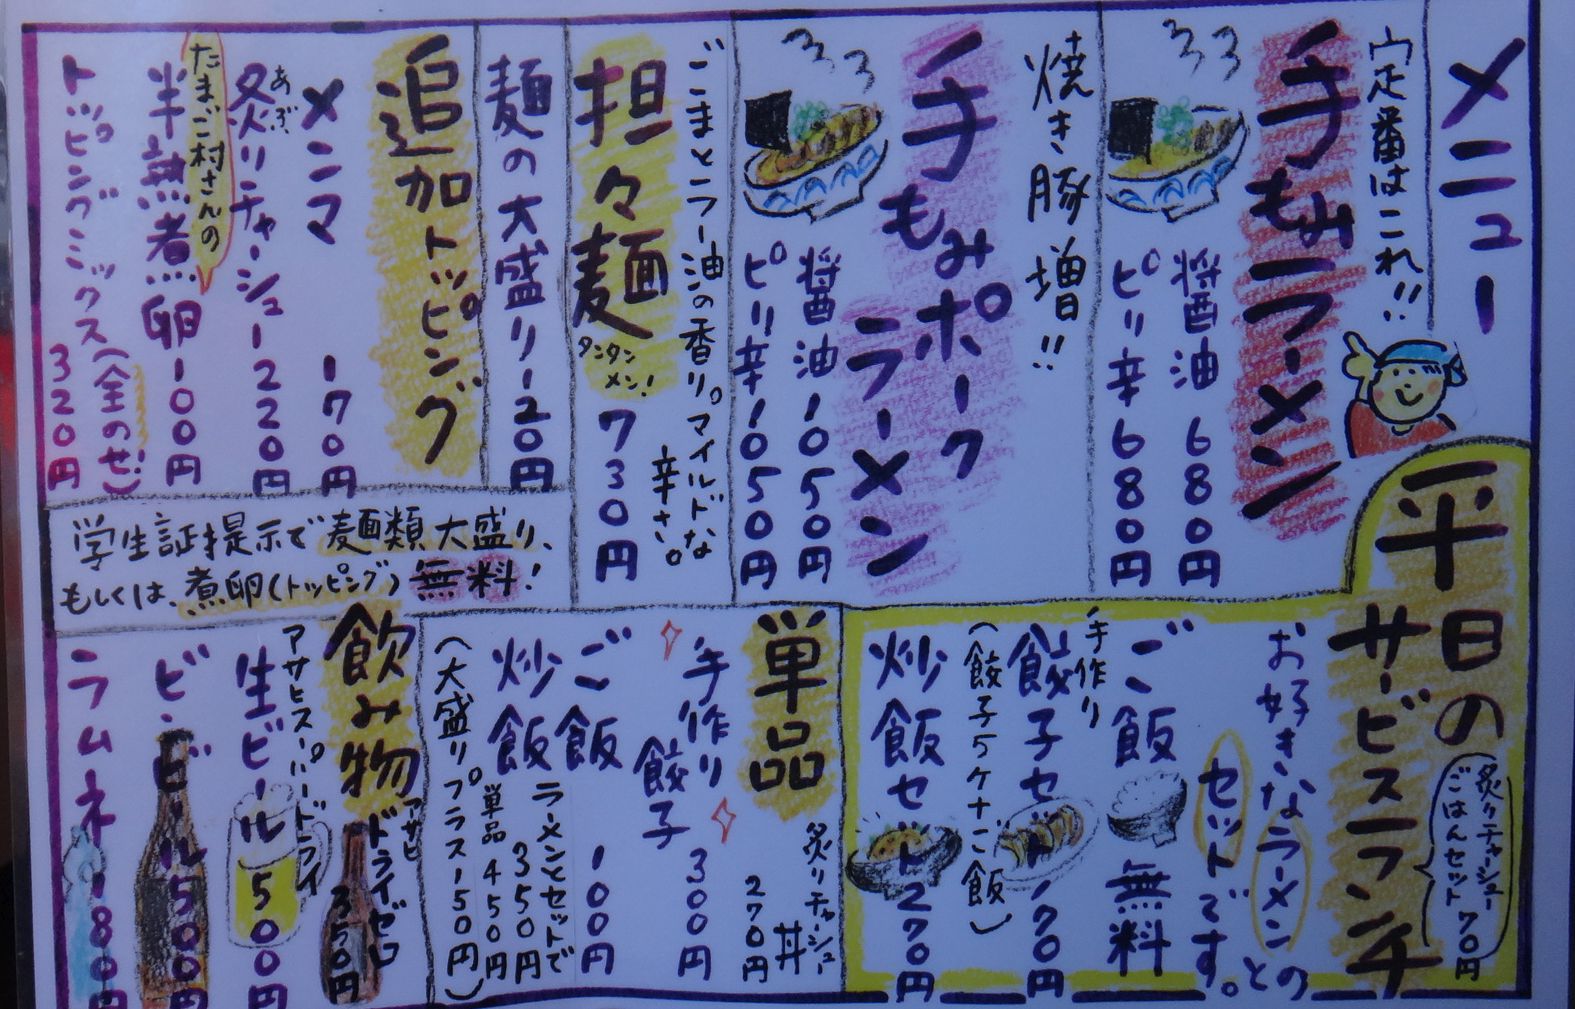 メニュー
定番はこれ!!
手もみラーメン
醤油 680円
ピリ辛 680円
焼き豚増!!
手もみポーク
ラーメン
醤油 1050円
ピリ辛 1050円
ごまとラー油の香り。マイルドな
辛さ。
担々麺
タンタン
メン!
730円
麺の大盛り 120円
追加トッピング
メンマ 170円
あぶ
炙りチャーシュー 220円
たまご村さんの
半熟煮卵 100円
トッピングミックス
(全のせ!)
320円
学生証提示で麺類大盛り、
もしくは、煮卵(トッピング)無料!
平日の
サービスランチ
炙りチャーシュー
ごはんセット 70円
お好きなラーメンとの
セットです。
ご飯 無料
手作り
餃子セット 170円
(餃子5ケナご飯)
炒飯セット 270円
単品
炙りチャーシュー
丼
270円
手作り
餃子
300円
ご飯 100円
炒飯
ラーメンとセットで
350円
単品 450円
(大盛りプラス150円)
飲み物
アサヒ
ドライゼロ
350円
アサヒスーパードライ
生ビール 500円
ビンビール 500円
ラムネ 180円